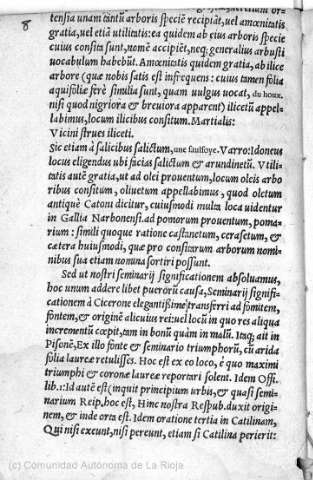 8
tensia unam tantũ arboris speciẽ recipiãt, uel amœnitatis
gratia, uel etiã utilitatis: ea quidem ab eius arboris specie
cuius consita sunt, nomẽ accipiẽt, neq; generalius arbusti
uocabulum habebũt. Amœnitatis quidem gratia, ab ilice
arbore (quæ nobis satis est infrequens: cuius tamen folia
aquifoliæ ferè similia sunt, quam uulgus uocat, du houx.
nisi quod nigriora & breuiora apparent) ilicetũ appel-
labimus, locum ilicibus consitum. Martialis:
Vicini strues iliceti.
Sic etiam à salicibus salictum, une saulsoye. Varro: Idoneus
locus eligendus ubi facias salictum & arundinetũ. Vtili-
tatis autẽ gratia, ut ad olei prouentum, locum oleis arbo
ribus consitum, oliuetum appellabimus, quod oletum
antiquè Catoni dicitur, cuiusmodi multa loca uidentur
in Gallia Narbonensi. ad pomorum prouentum, poma-
rium: simili quoque ratione castanetum, cerasetum, &
cætera huiusmodi, quæ pro consitarum arborum nomi-
nibus sua etiam nomina sortiri possunt.
Sed ut nostri seminarij significationem absoluamus,
hoc unum addere libet puerorũ causa, Seminarij signifi-
cationem à Cicerone elegantissimè transferri ad fomitem,
fontem, & originẽ alicuius rei: uel locũ in quo res aliqua
incrementũ cœpit, tam in bonũ quàm in malũ. Itaq; ait in
Pisonẽ, Ex illo fonte & seminario triumphorũ, cũ arida
folia laureæ retulisses. Hoc est ex eo loco, è quo maximi
triumphi & coronæ laureæ reportari solent. Idem Offi.
lib. 1: Id autẽ est (inquit) principium urbis, & quasi semi-
narium Reip. hoc est, Hinc nostra Respub. duxit origi-
nem, & inde orta est. Idem oratione tertia in Catilinam,
Qui nisi exeunt, nisi pereunt, etiam si Catilina perierit:
(c) Comunidad Autónoma de La Rioja